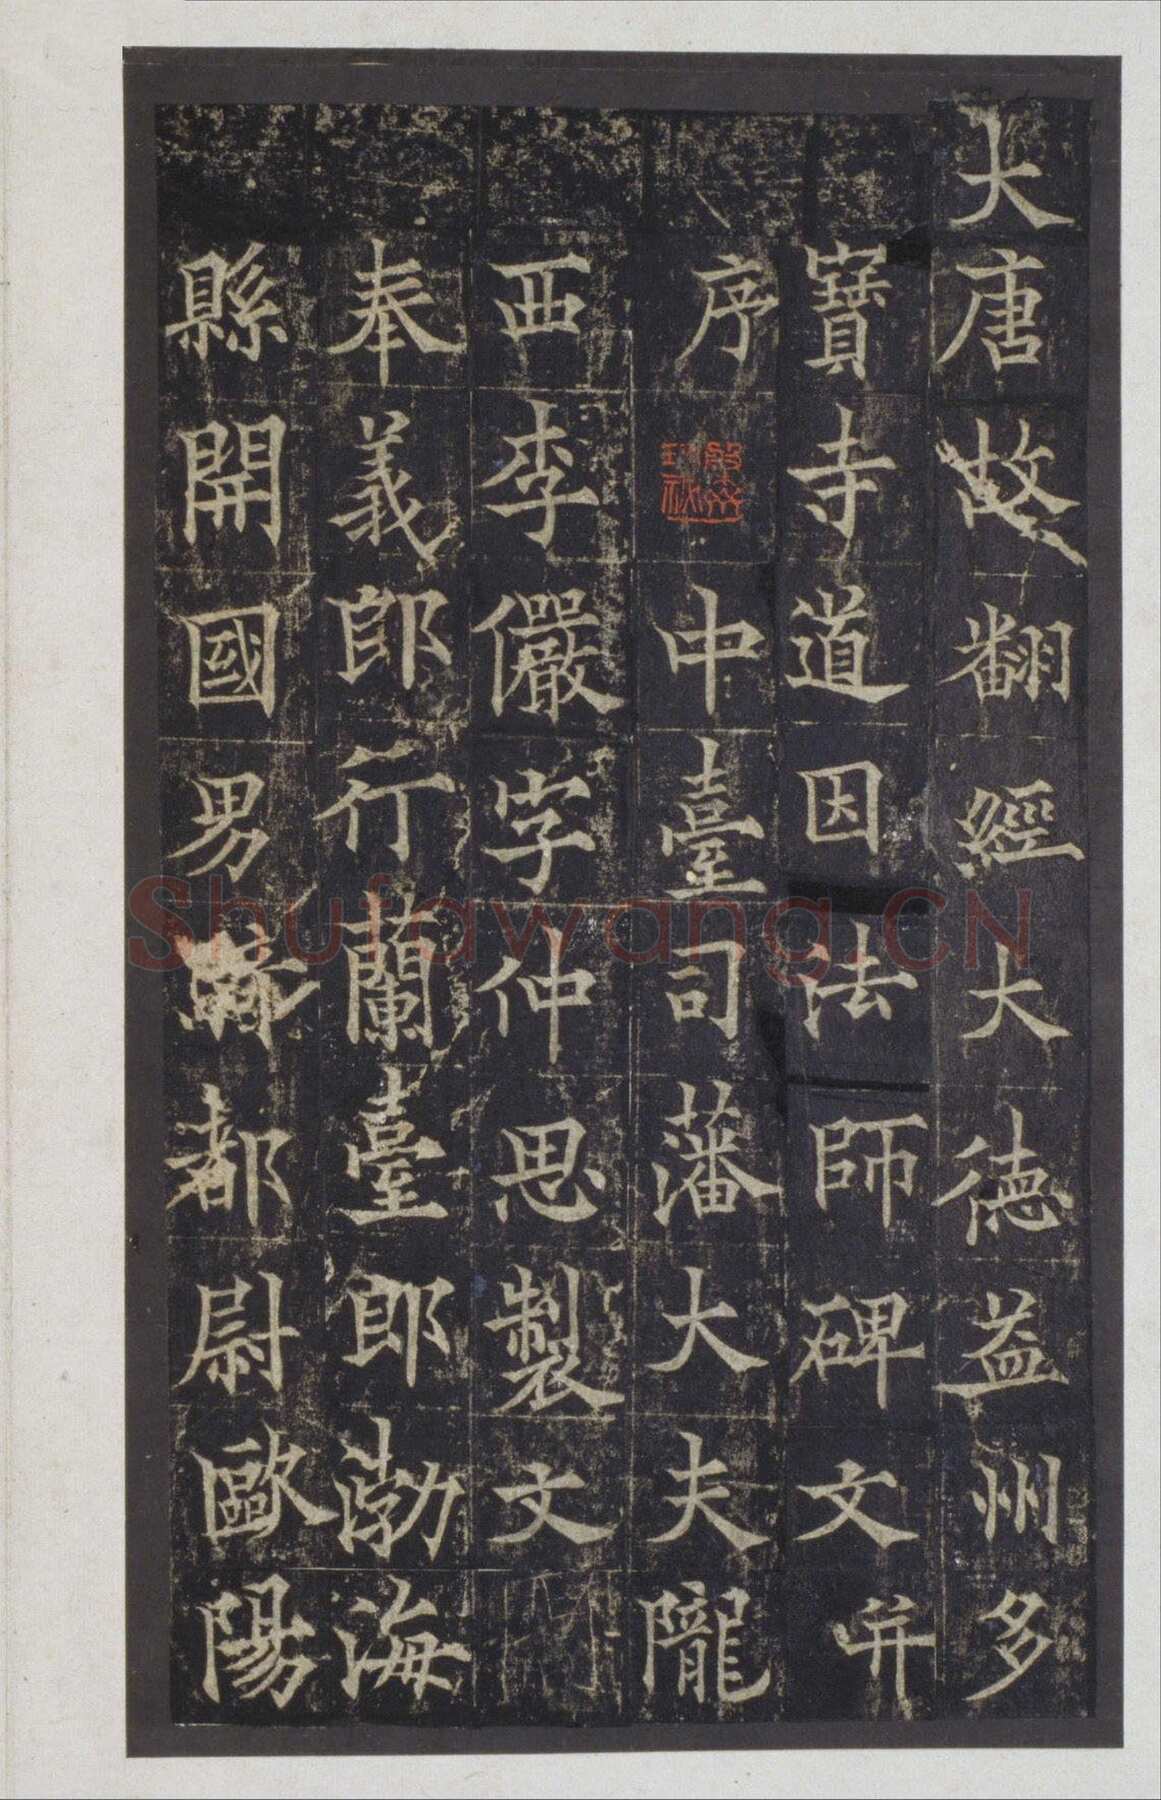 大唐故翻經大德益州多
寶寺道因法師碑文并
序
中臺司藩大夫隴
西李儼字仲思製文
奉義郎行蘭臺郎渤海
縣開國男 都尉歐陽
Shufawang.CN